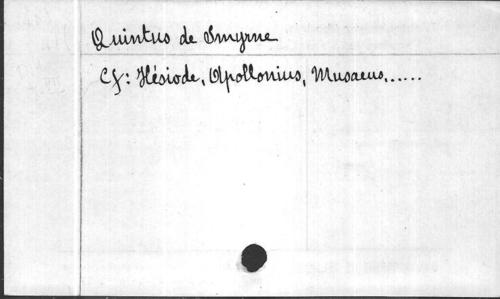 Quintus de Smyrne
Cf: Hésiode, Apollonius, Musaeus,......